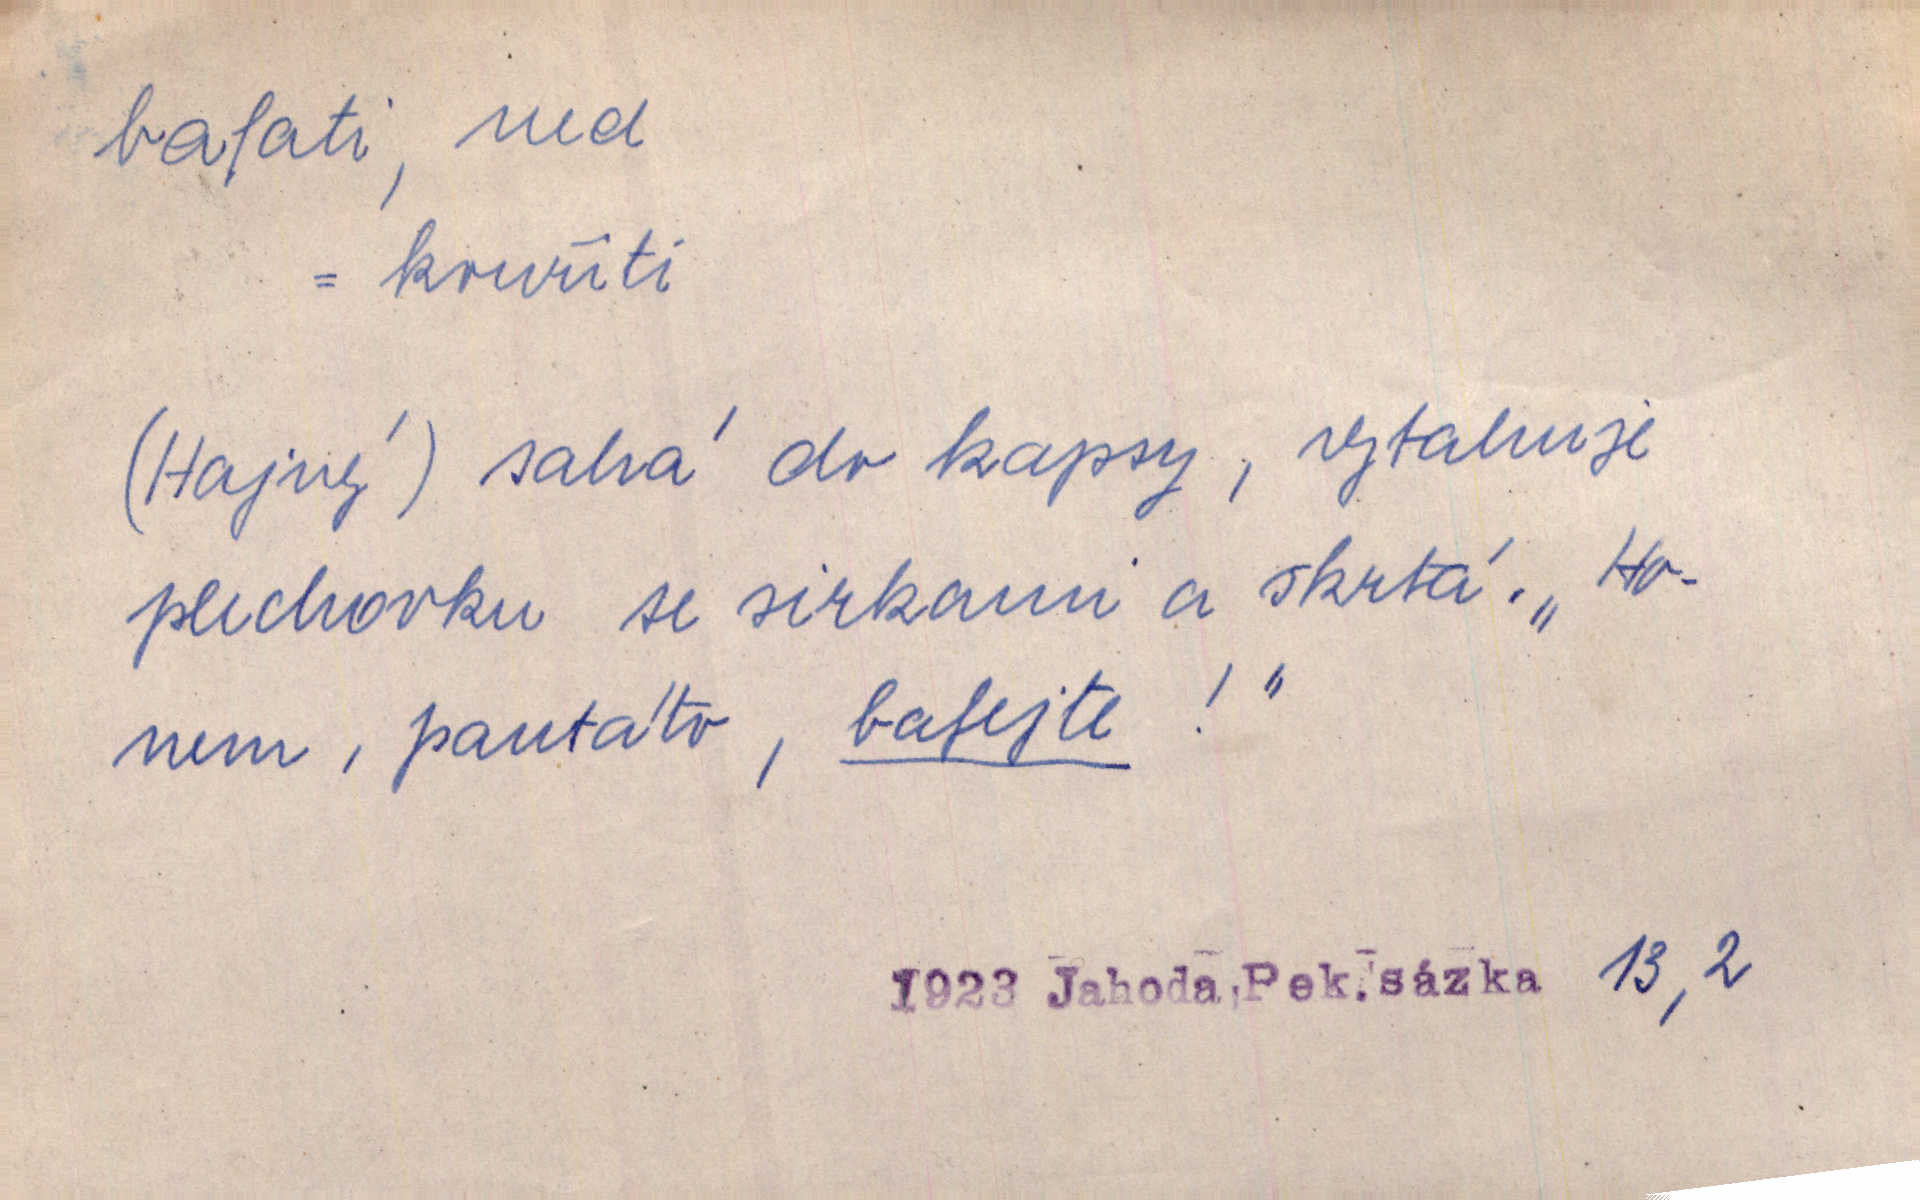 bafati, ned
= kouřiti
(Hajný) sahá do kapsy, vytahuje
plechovku se sirkami a škrtá. „Ho-
nem, pantáto, bafejte!"
1923 Jahoda, Pek. sázka 13, 2